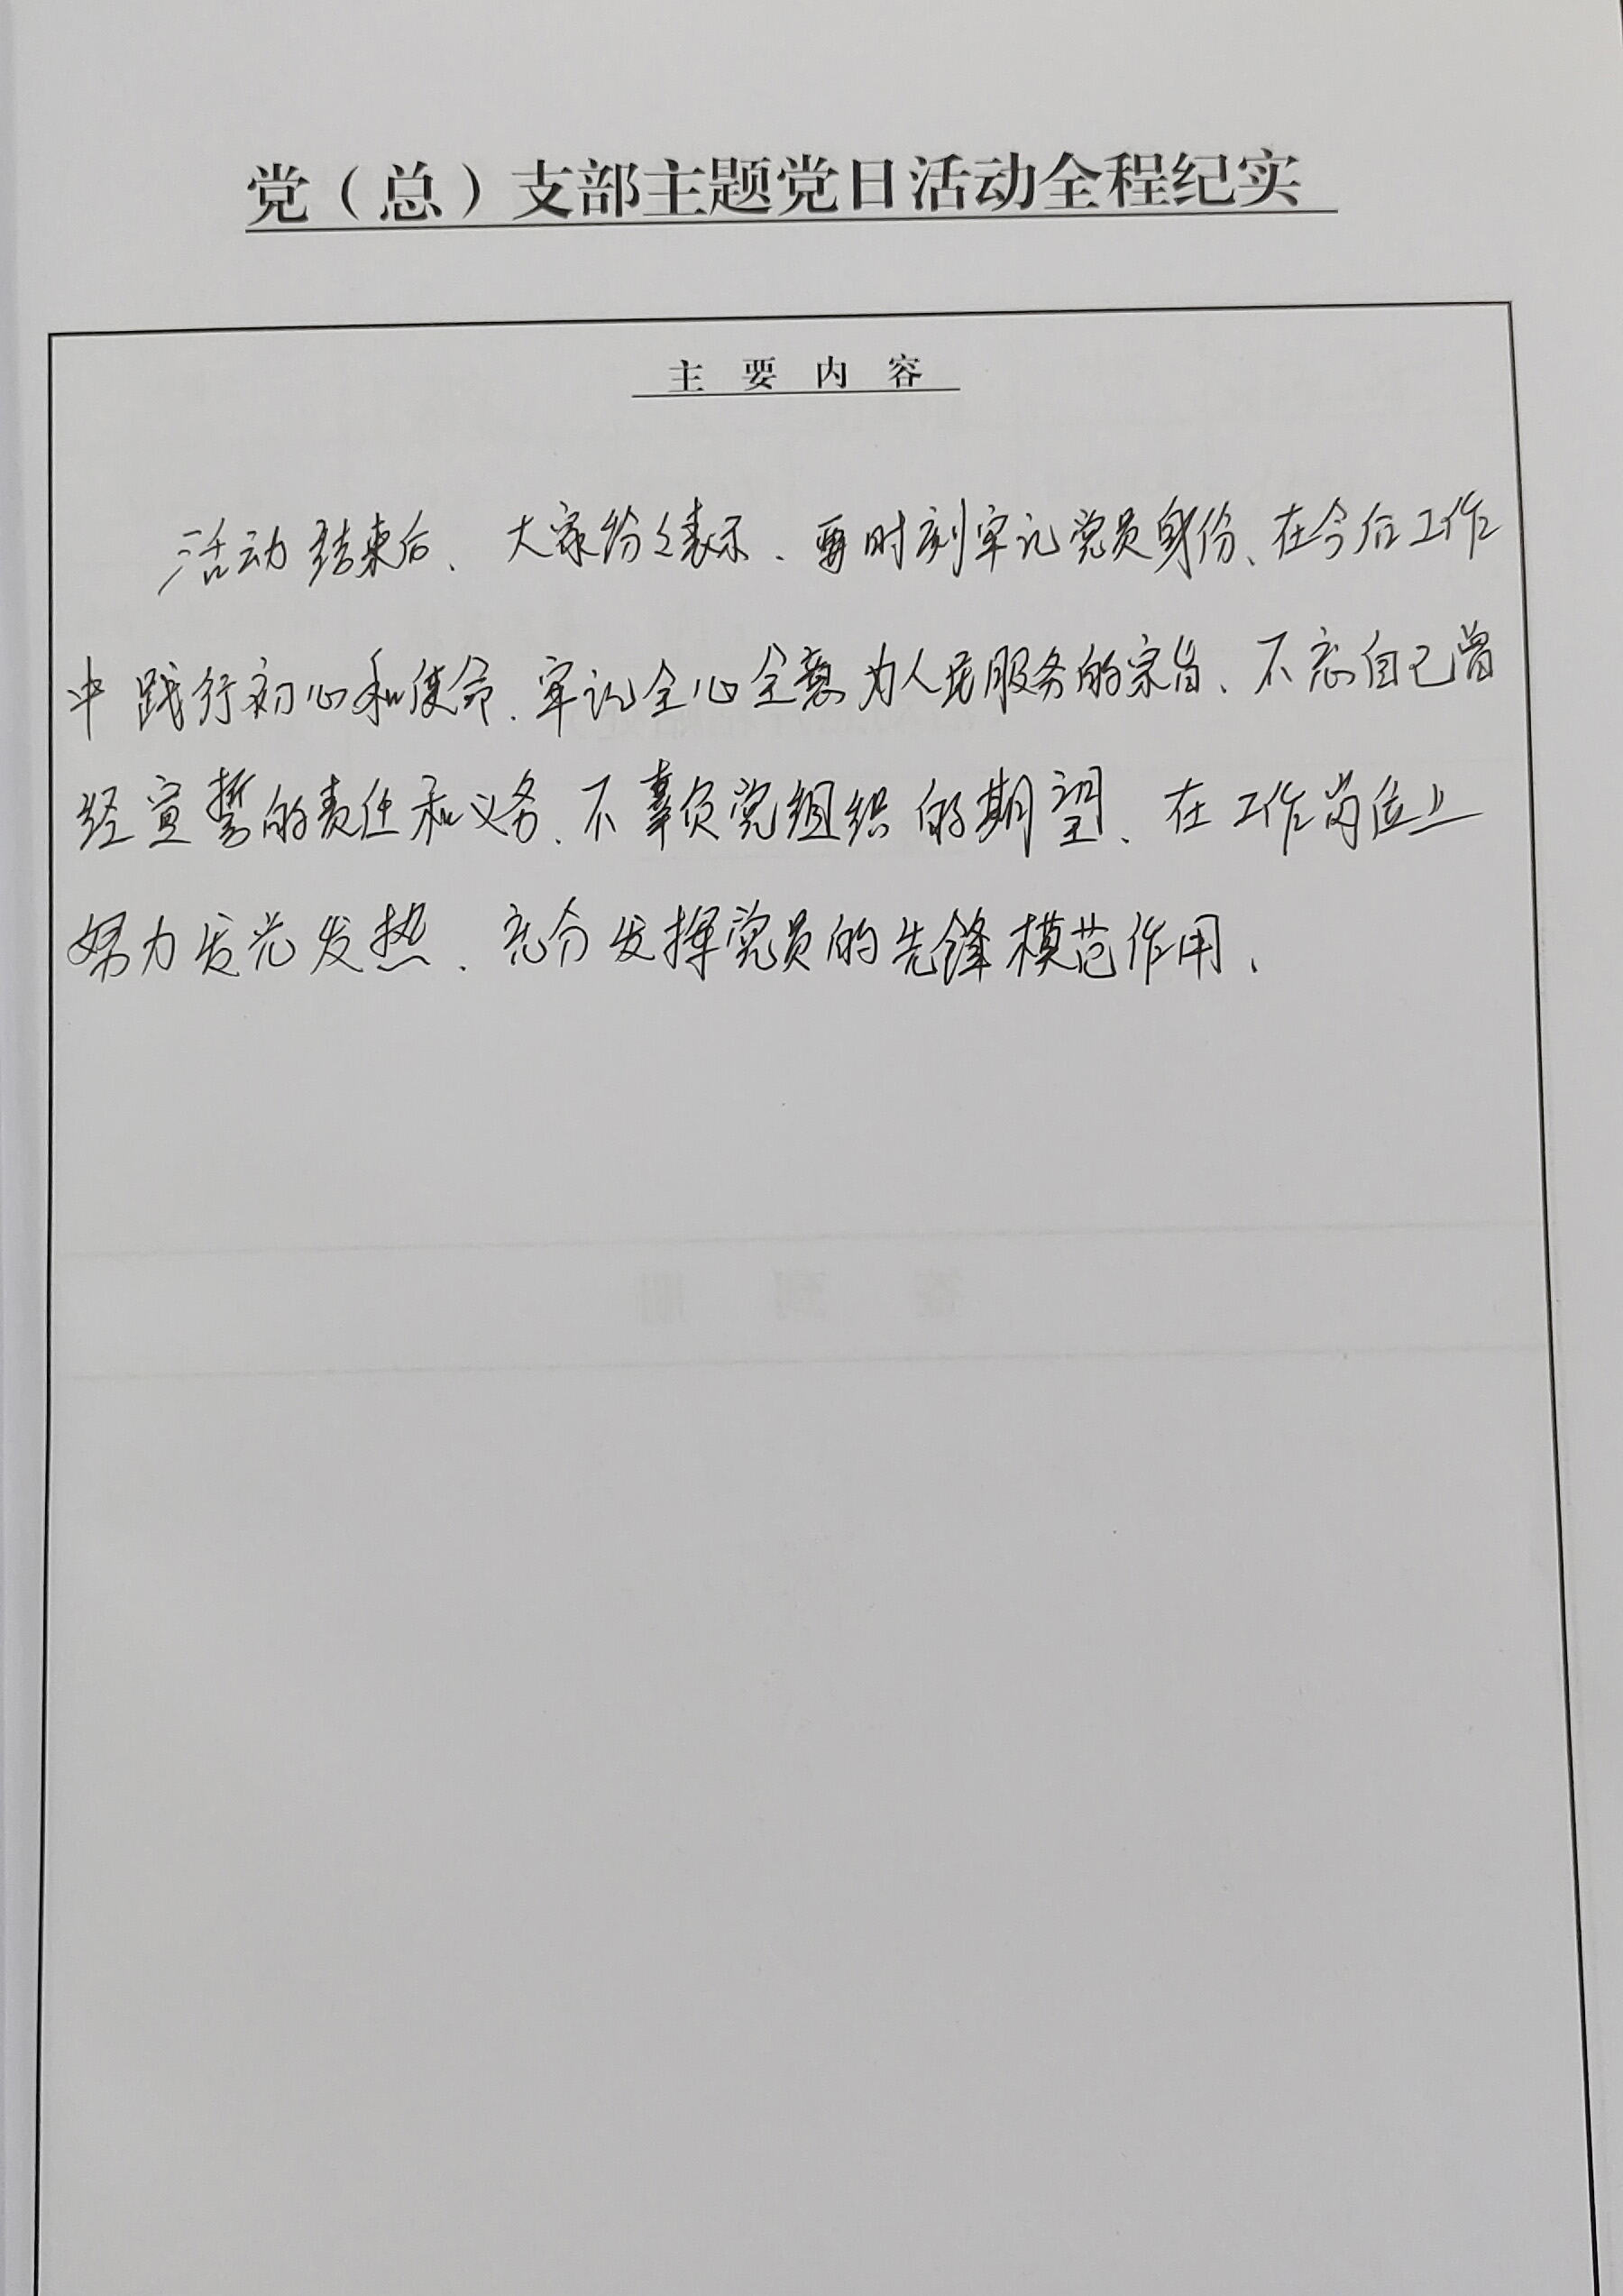 党（总）支部主题党日活动全程纪实
主要内容
活动结束后、大家纷纷表示、要时刻牢记党员身份、在今后工作
中践行初心和使命、牢记全心全意为人民服务的宗旨、不忘自己曾
经宣誓的责任和义务、不辜负党组织的期望、在工作岗位上
努力发光发热、充分发挥党员的先锋模范作用、